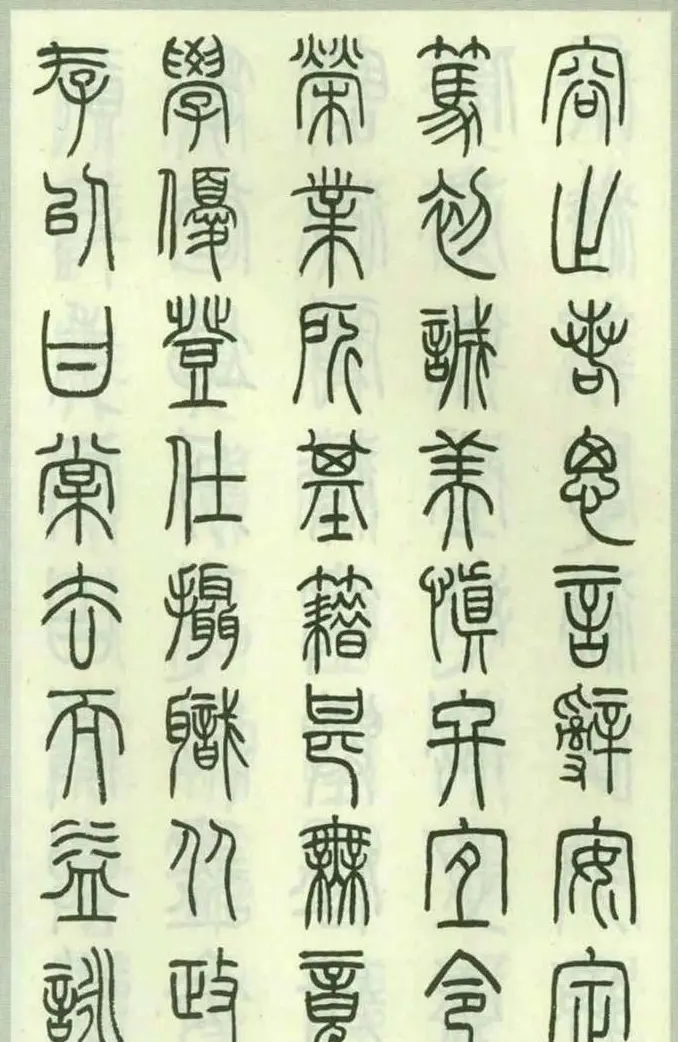 容止若思言辭安定
篤初誠美慎終宜令
榮業所基籍甚無竟
學優登仕攝職从政
存以甘棠去而益詠